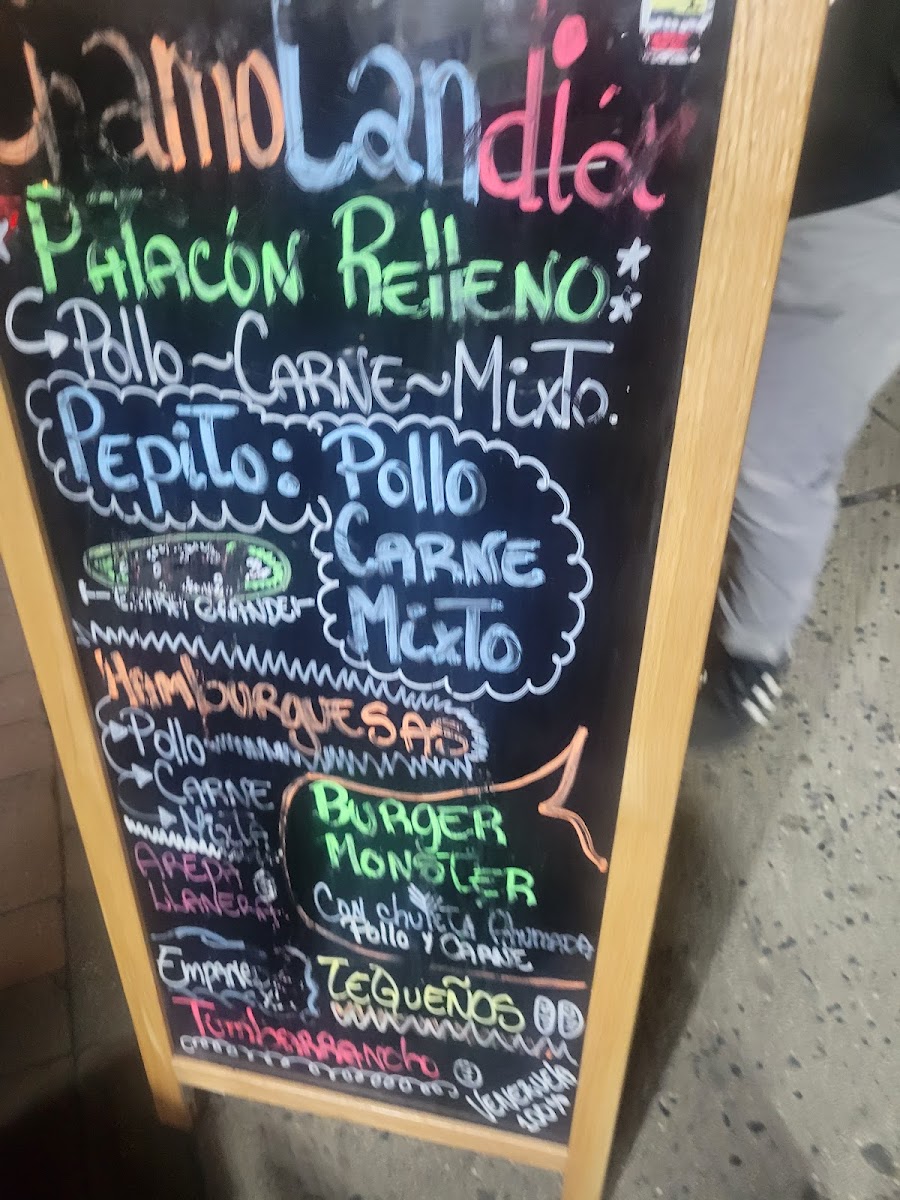 ChamoLandia
PATACÓN RELLENO
Pollo ~ CARNE ~ MixTo.
PEPITO: Pollo
CARNE
MixTo
HAMBURGUESAS
Pollo
CARNE
Mixta
BURGER
MONSTER
Con chuleta Ahumada
Pollo y CARNE
AREPA
LLANERA
TEQUEÑOS
TumbARRANcho
VENEZUELA
100%